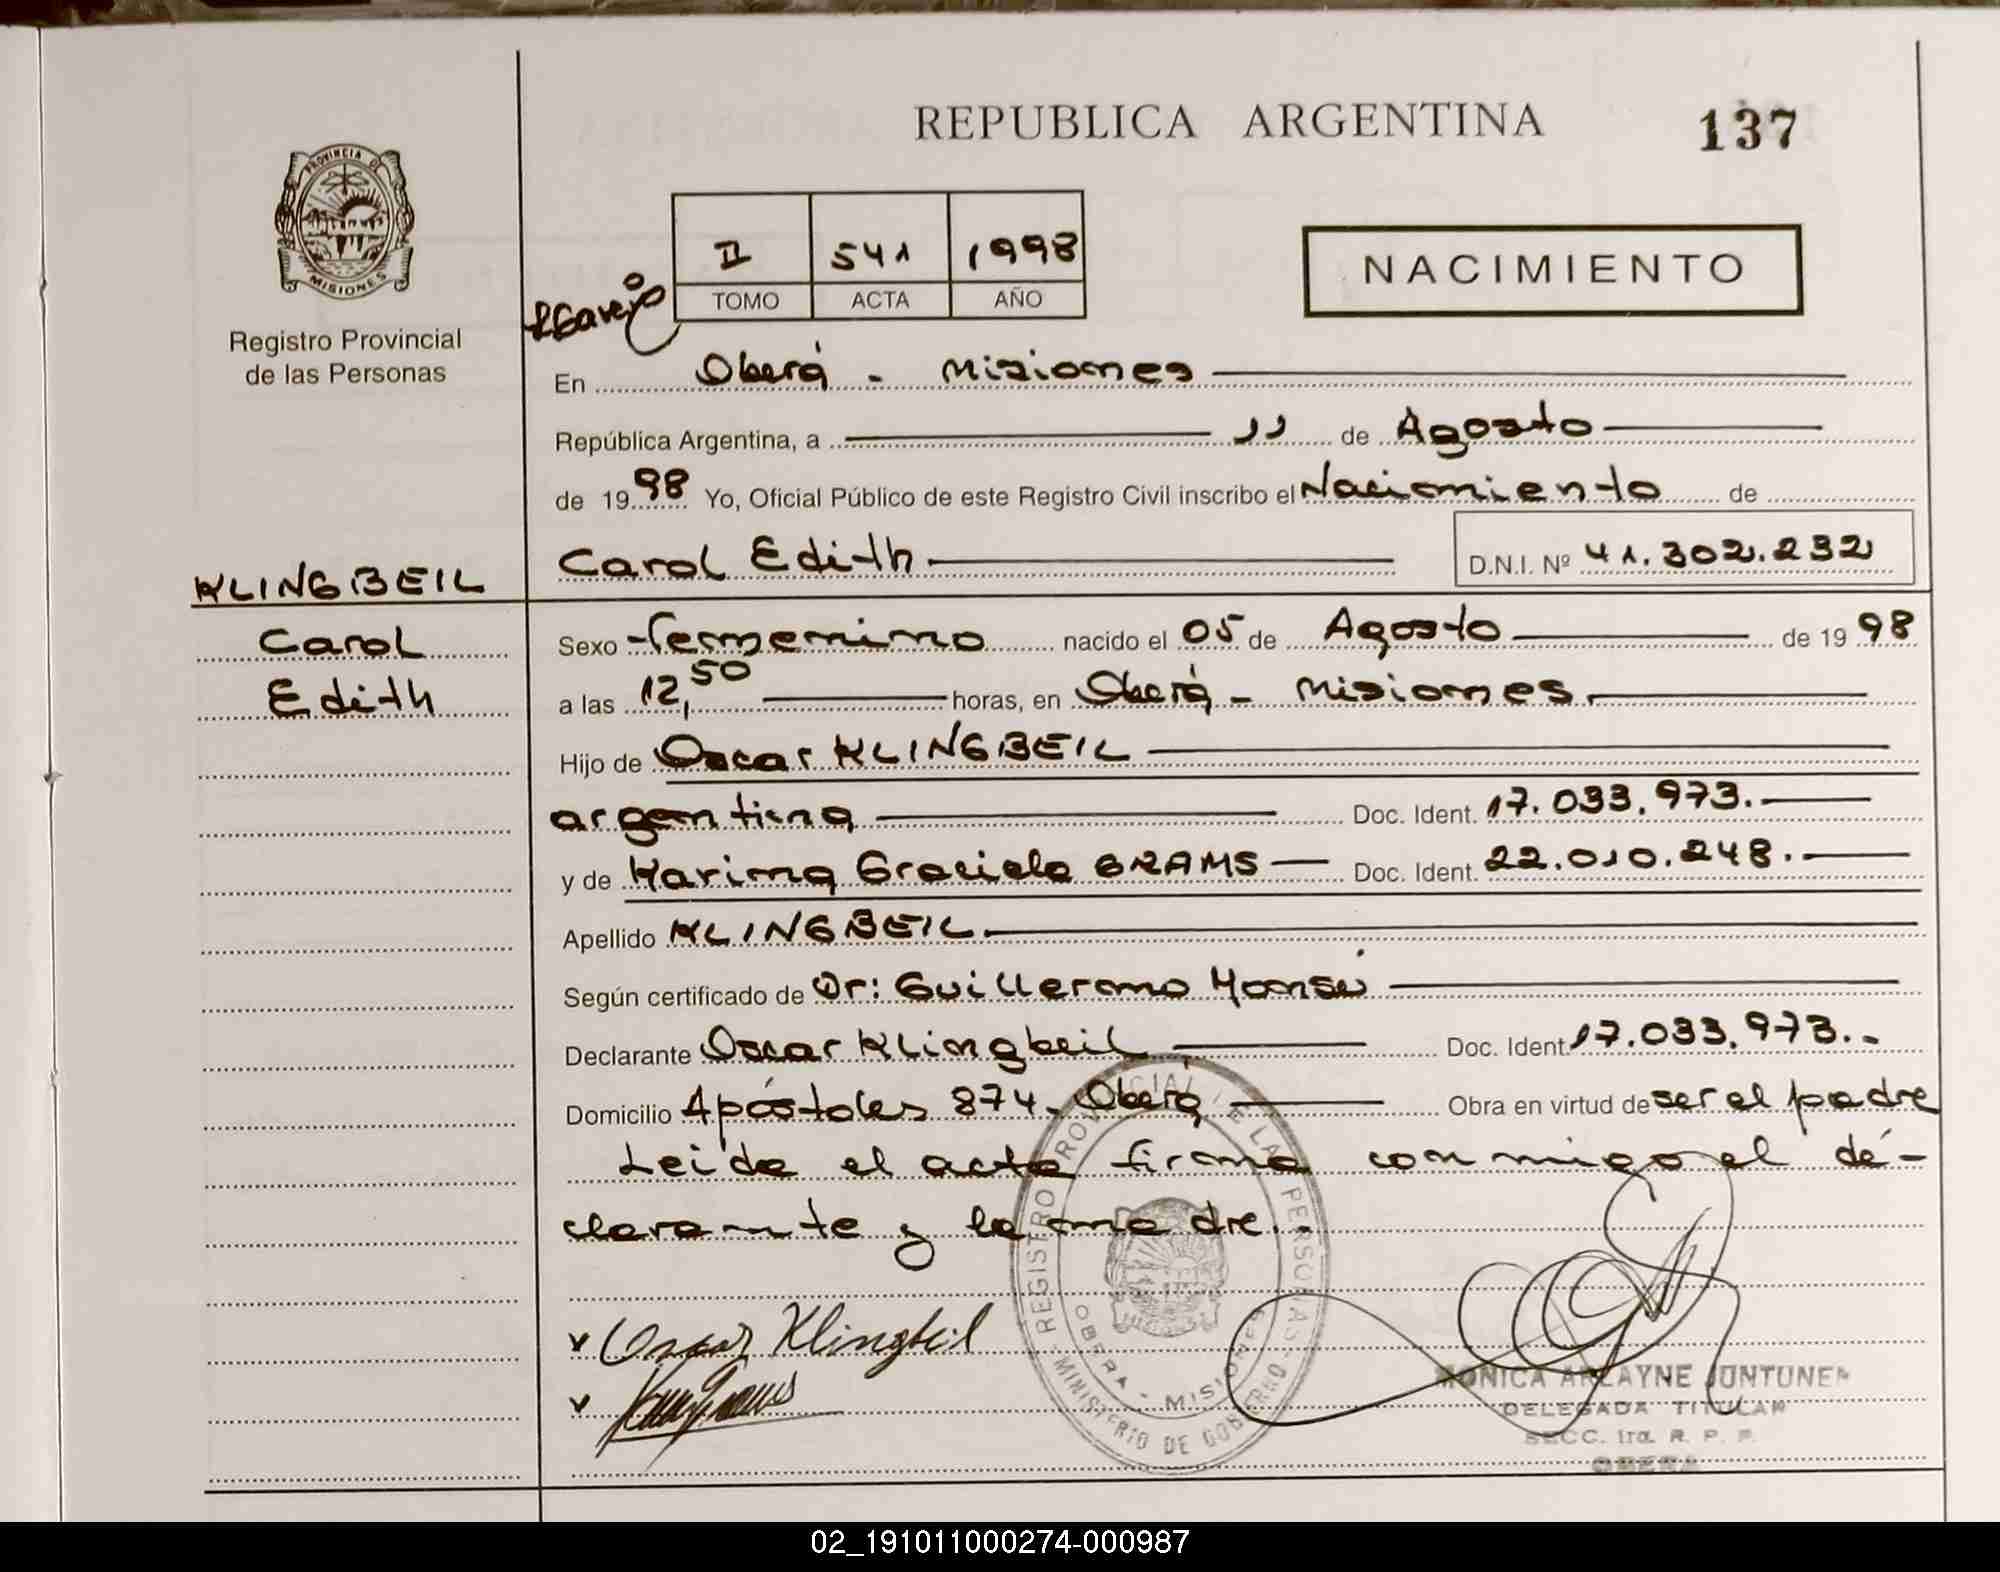 REPUBLICA ARGENTINA
137
PROVINCIA DE
MISIONES
Registro Provincial
de las Personas
II 541 1998
TOMO ACTA AÑO
NACIMIENTO
En Oberá - Misiones
República Argentina, a 11 de Agosto
de 1998 Yo, Oficial Público de este Registro Civil inscribo el Nacimiento de
Carol Edith D.N.I. Nº 41.302.232
KLINGBEIL
Carol
Edith
Sexo femenino nacido el 05 de Agosto de 1998
a las 12,50 horas, en Oberá - Misiones.
Hijo de Oscar KLINGBEIL
argentina Doc. Ident. 17.033.973.
y de Karina Graciela GRAMS Doc. Ident. 22.010.248.
Apellido KLINGBEIL.
Según certificado de Dr: Guillermo
Declarante Oscar Klingbeil Doc. Ident. 17.033.973.-
Domicilio Apóstoles 874 - Oberá Obra en virtud de ser el padre
Leida el acta firma conmigo el de-
clarante y la madre.
Oscar Klingbeil
REGISTRO PROVINCIAL DE LAS PERSONAS - MINISTERIO DE GOBIERNO -
OBERA - MISIONES
MONICA ARLAYNE JUNTUNEN
DELEGADA TITULAR
SECC. 1ra. R. P. P.
OBERA
02_191011000274-000987